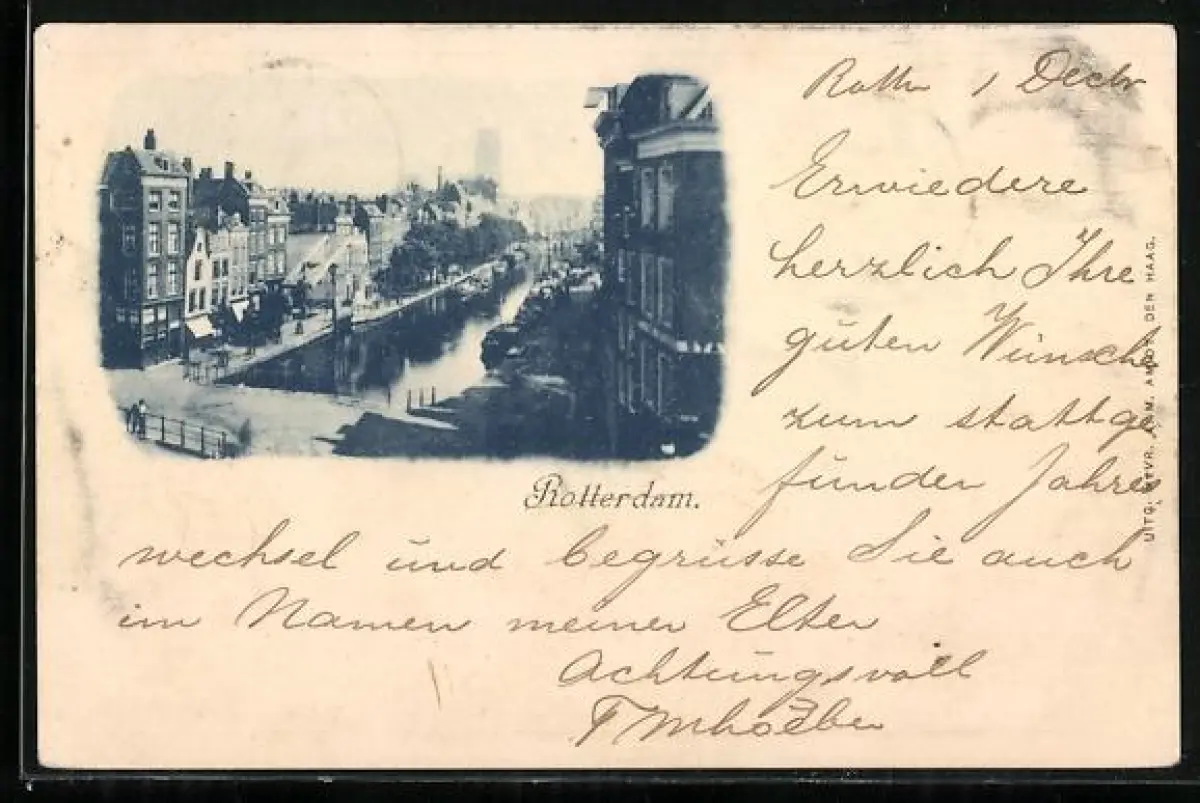 Rotth 1 Decbr
Erwiedere
herzlich Ihre
guten Wünsche
zum stattge
funden Jahres
wechsel und begrüsse Sie auch
im Namen meiner Elter
Achtungsvoll
Rotterdam.
DEN HAAG.